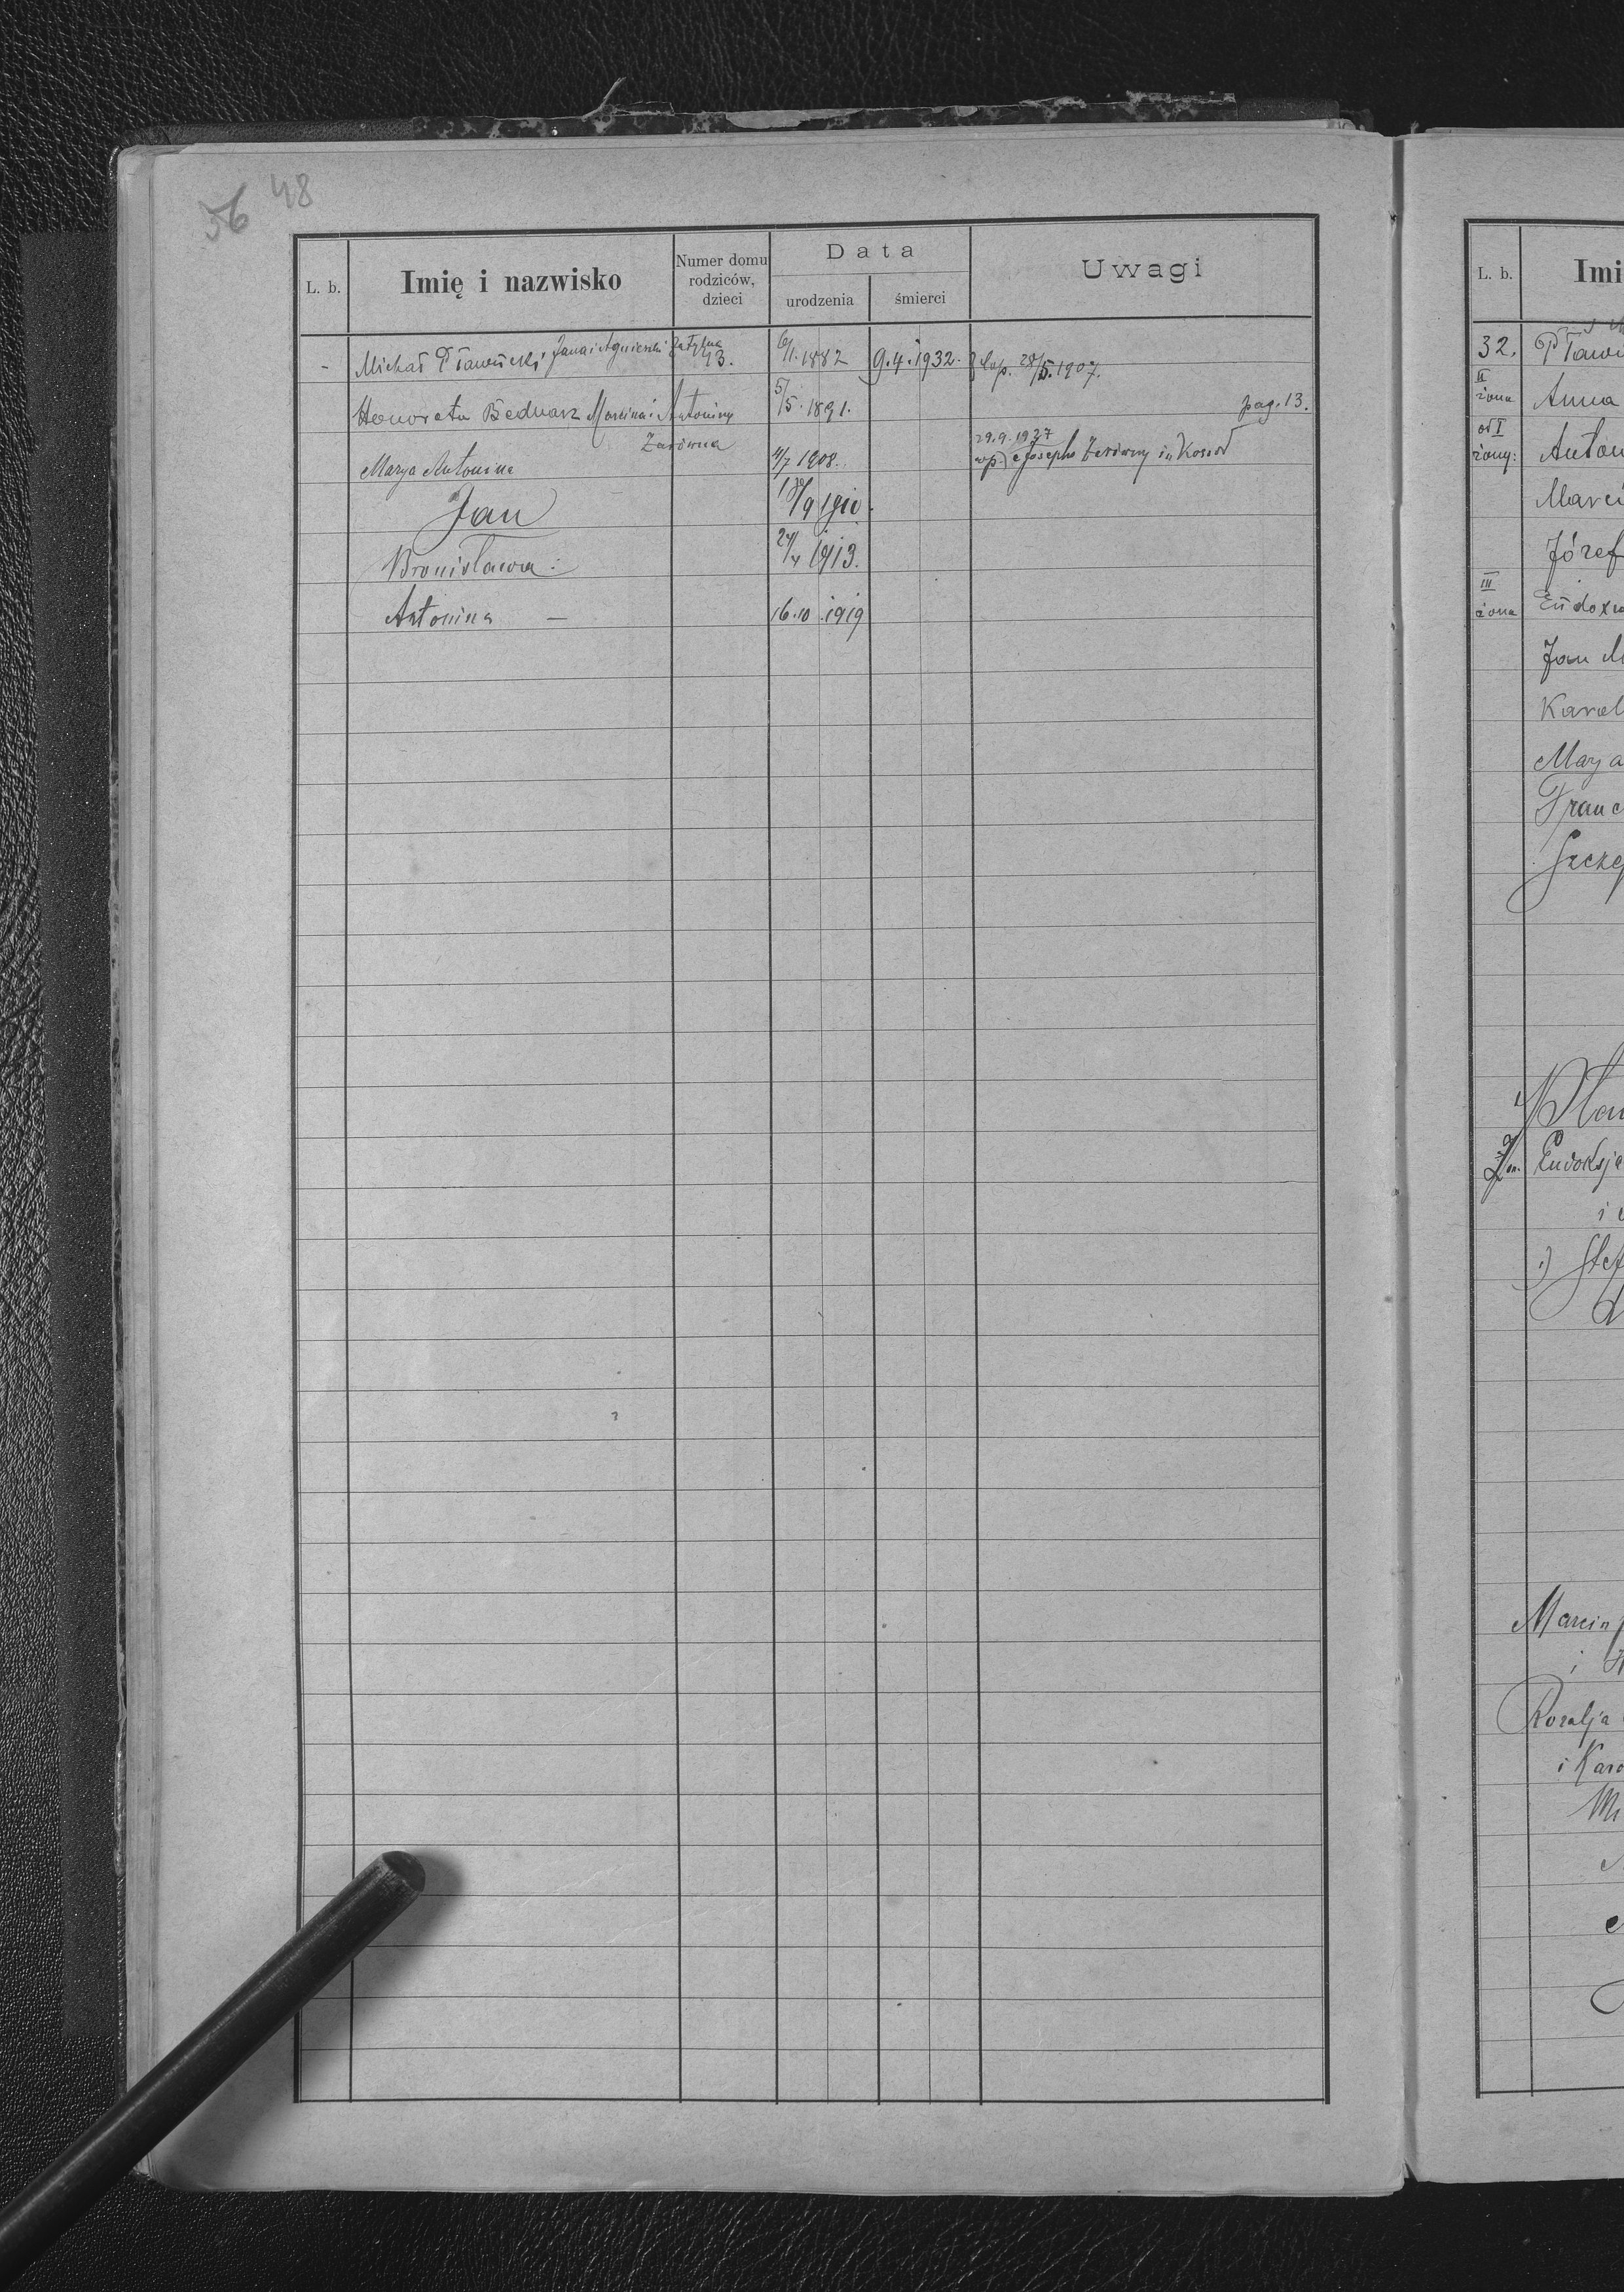 56 48
L. b. Imię i nazwisko Numer domu rodziców, dzieci Data urodzenia śmierci Uwagi
- Michał Pławucki Jana i Agnieszki 43. 6/1. 1882 9.4.1932. 28/5. 1907.
Honorata Bednarz Marcina i Antoniny 5/5. 1891. pag. 13.
Zariwna 29.9.1927
Marya Antonina 4/7 1908. Josepho Zeriwny in Kosów
Jan 18/9 1910.
Bronisława: 24/4 1913.
Antonina — 16.10.1919
L. b. Imi
32. Pławu
II żona Anna
od I żony: Anton
Marci
Józef
III żona Eudoxia
Jan M
Karol
Marya
Franc
Szczep
Pław
Eudoksja
i
1) Stef
Marcin
i
Rozalja
i Karo